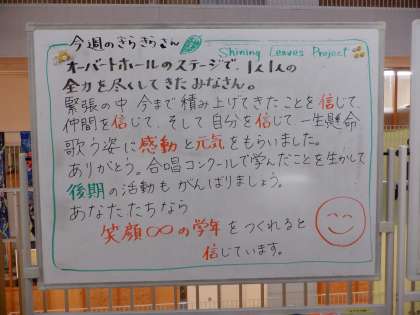 今週のきらきらさん
Shining Leaves Project
オーバートホールのステージで、1人1人の
全力を尽くしてきたみなさん。
緊張の中 今まで積み上げてきたことを信じて、
仲間を信じて、そして自分を信じて一生懸命
歌う姿に感動と元気をもらいました。
ありがとう。合唱コンクールで学んだことを生かして
後期の活動もがんばりましょう。
あなたたちなら
笑顔∞の学年をつくれると
信じています。